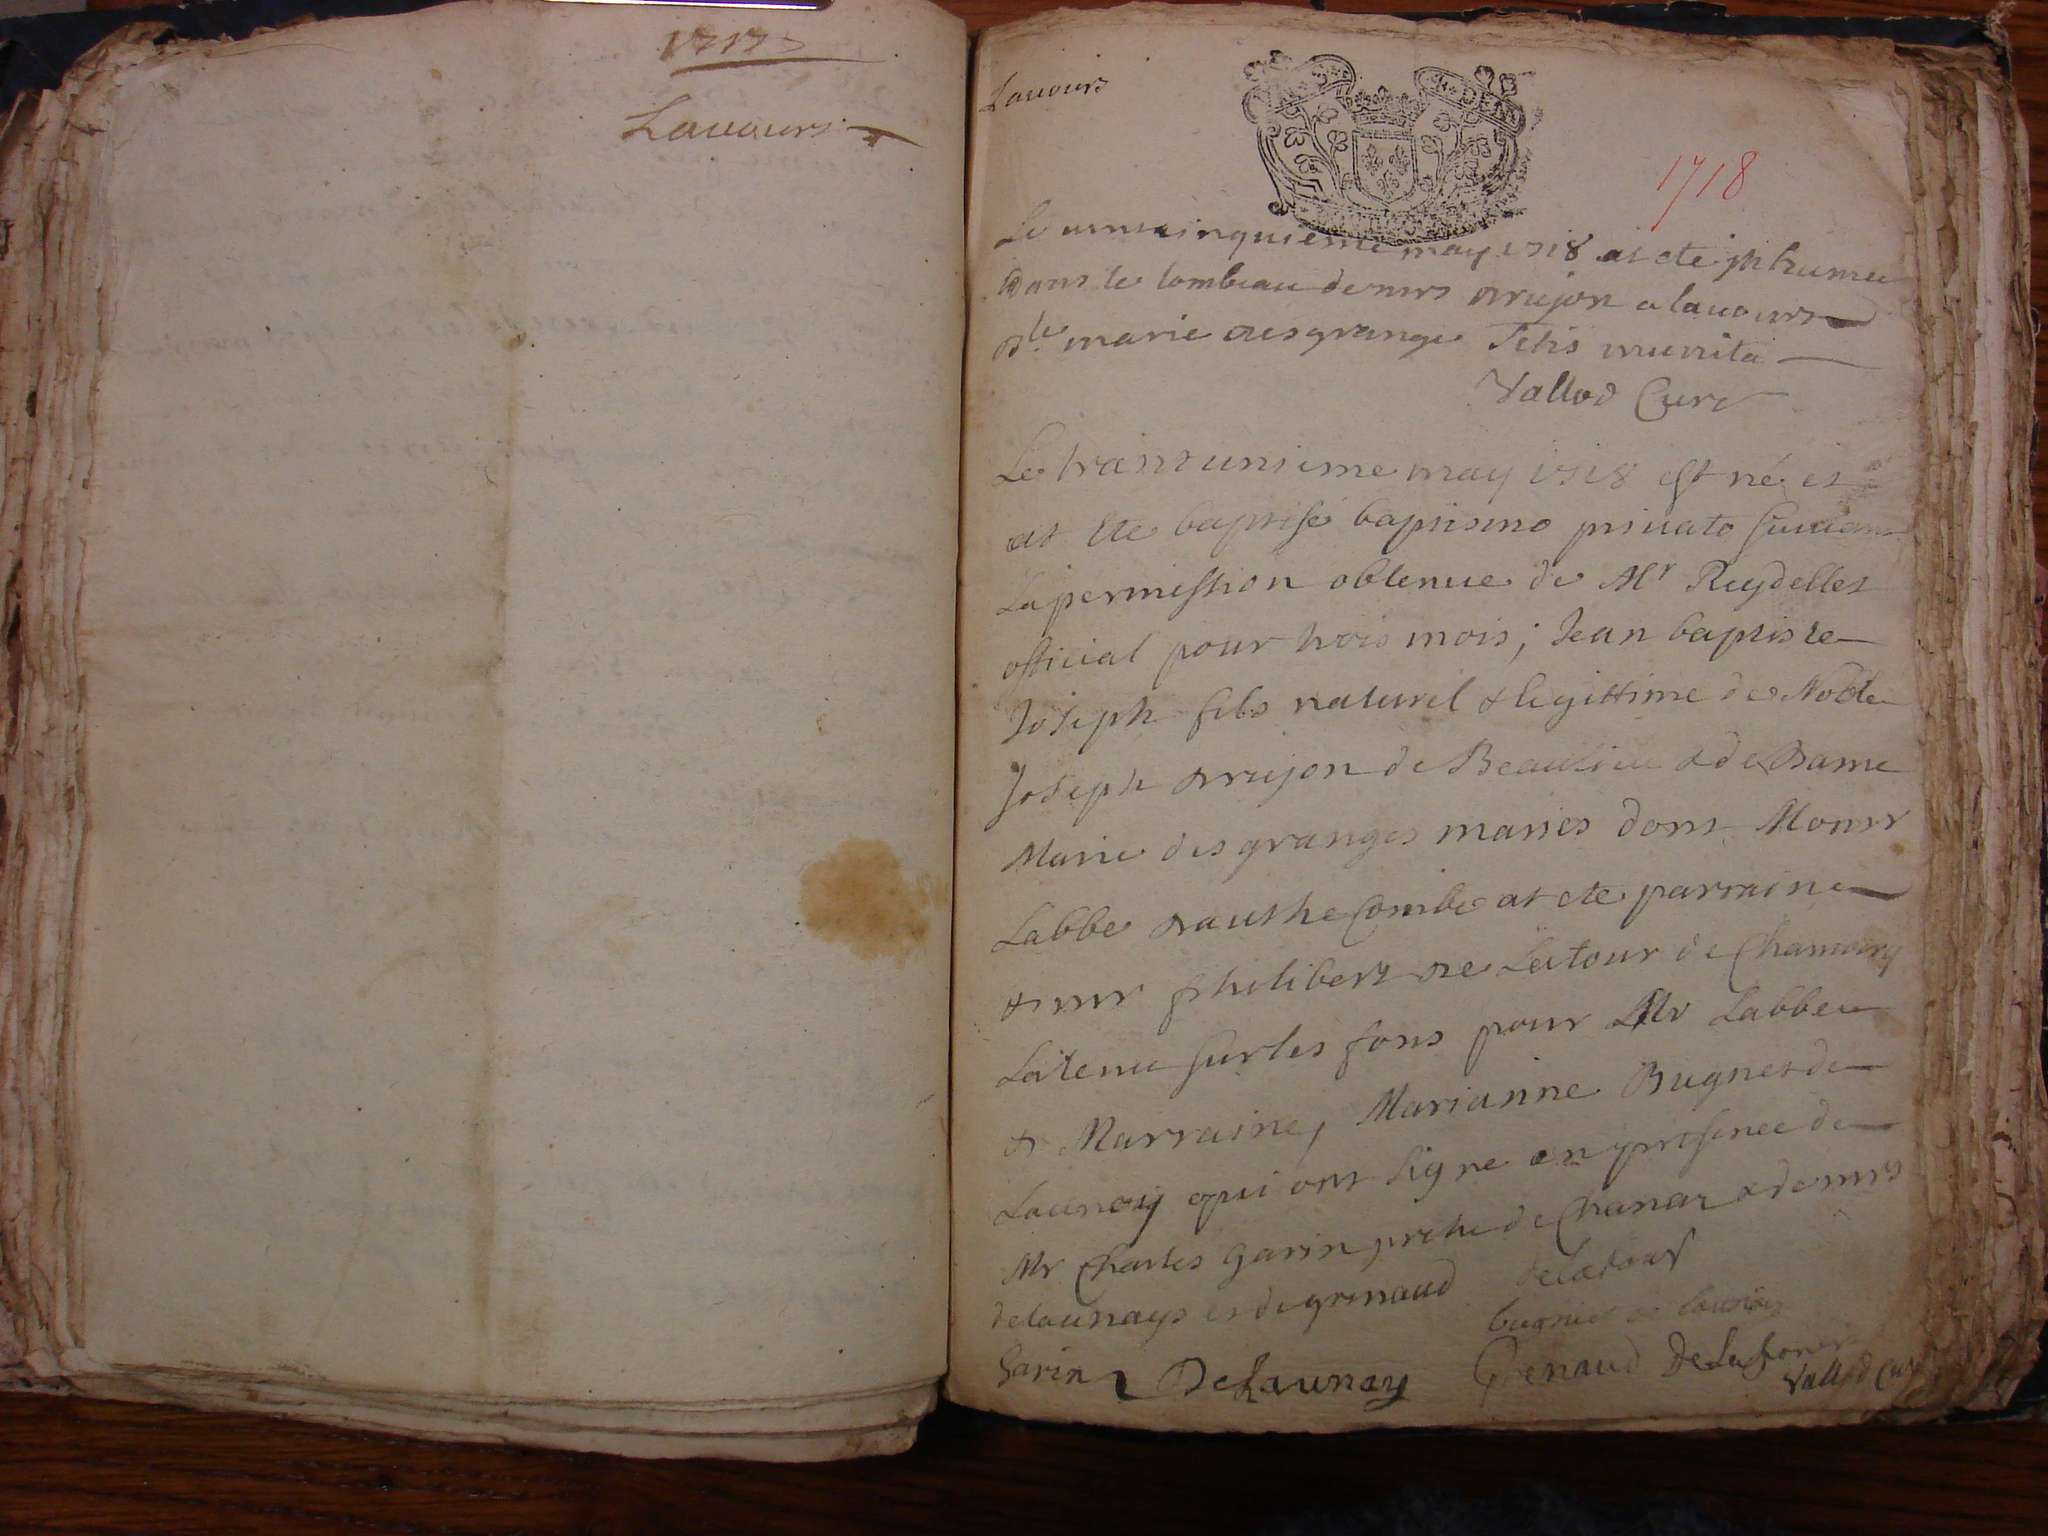 1717
Lauours
Lauours
1718
Le vint cinquieme may 1718 at ete inhumée
Dans le tombeau de mrs drujon a lauours
Dlle marie desgrange Stis munita
Vallod Curé
Le trant unieme may 1718 est né et
at ete baptisé baptismo priuato suiuant
La permission obtenue de Mr Reydellet
official pour trois mois; Jean baptiste
Joseph fils naturel & legittime de Noble
Joseph drujon de Beaulieu & de Dame
Marie desgranges mariés dont Monsr
Labbe dauthecombe at ete parrain
& mr philibert de Latour de Chambery
La tenu sur les fons pour Mr Labbe
& Marraine, Marianne Bugnet de
Launay qui ont signe en presence de
Mr Charles Garin pretre de Chanaz & de mrs
delaunays et de grenaud delatour
bugniet de launay
Garin DeLaunay Grenaud
Vallod Curé